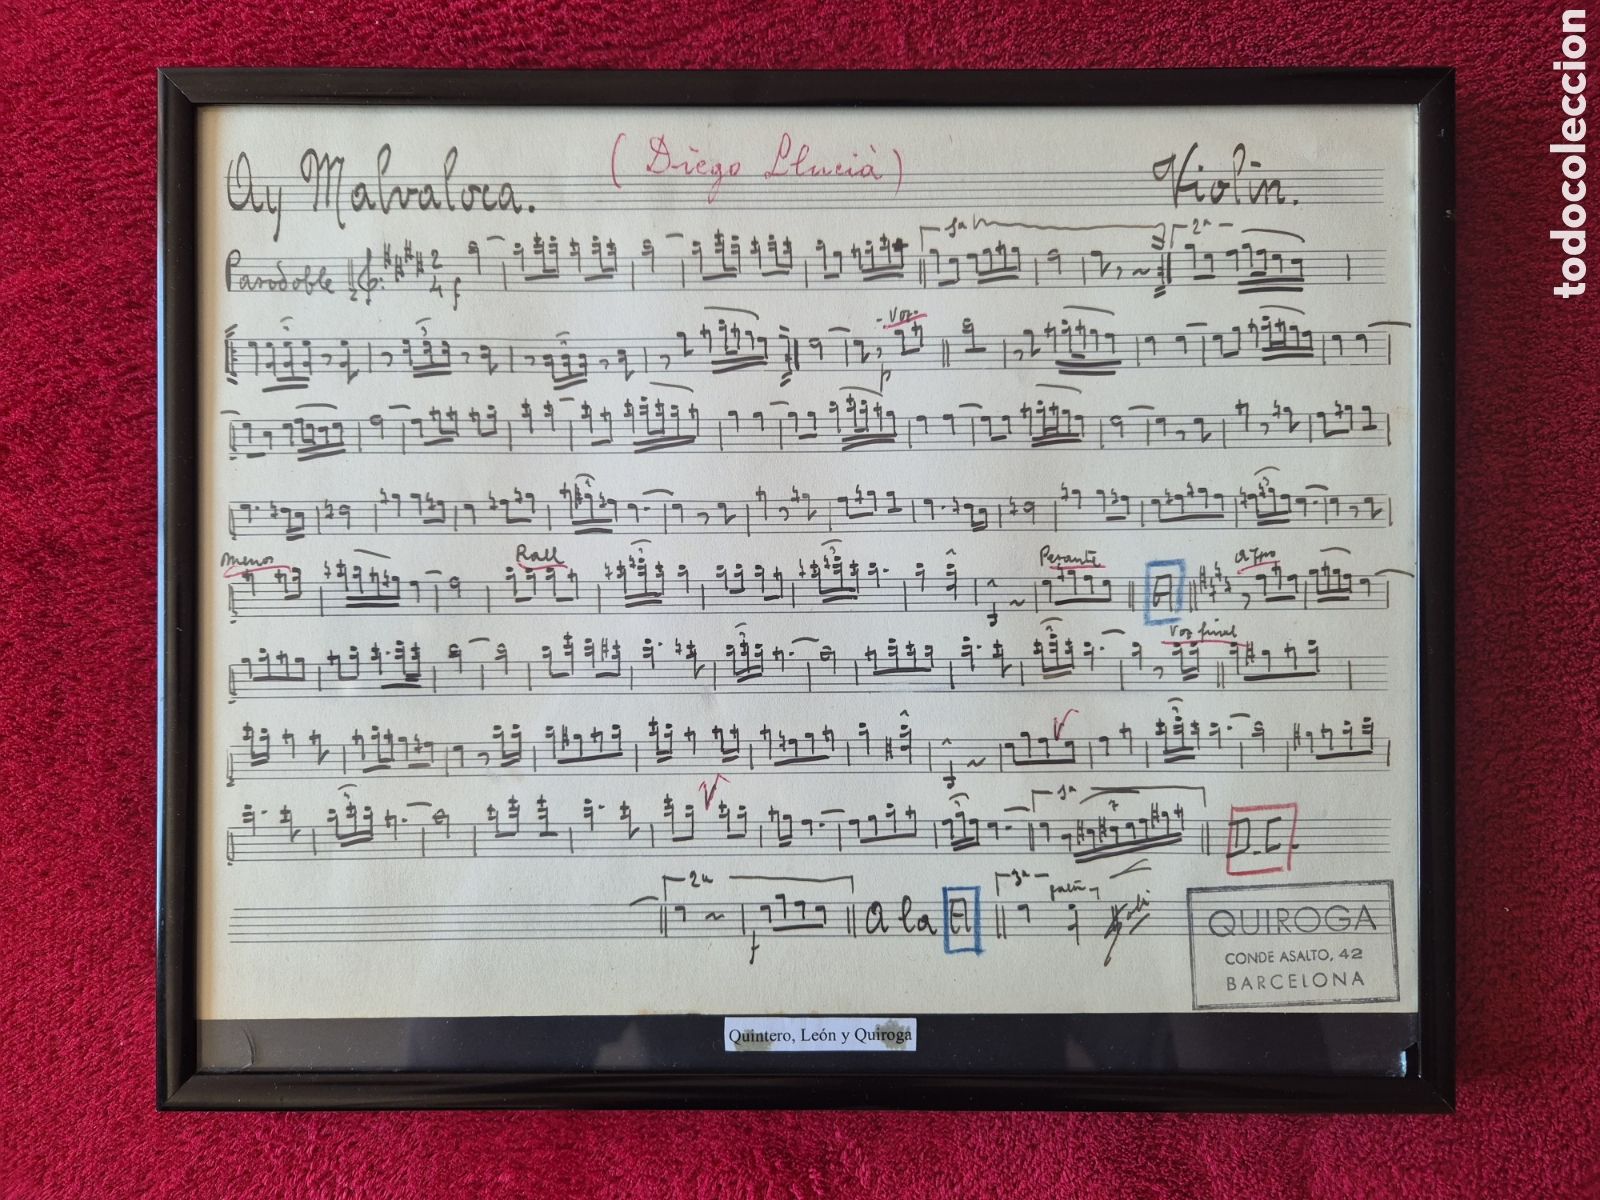 Ay Malvaloca. (Diego Llucià) Violin.
Pasodoble 2 4 f 1a 2a
-Voz- p
Menos Rall Pesante A
Voz final
1a D.C.
2a f A la A 3a
QUIROGA
CONDE ASALTO, 42
BARCELONA
Quintero, León y Quiroga
todocoleccion